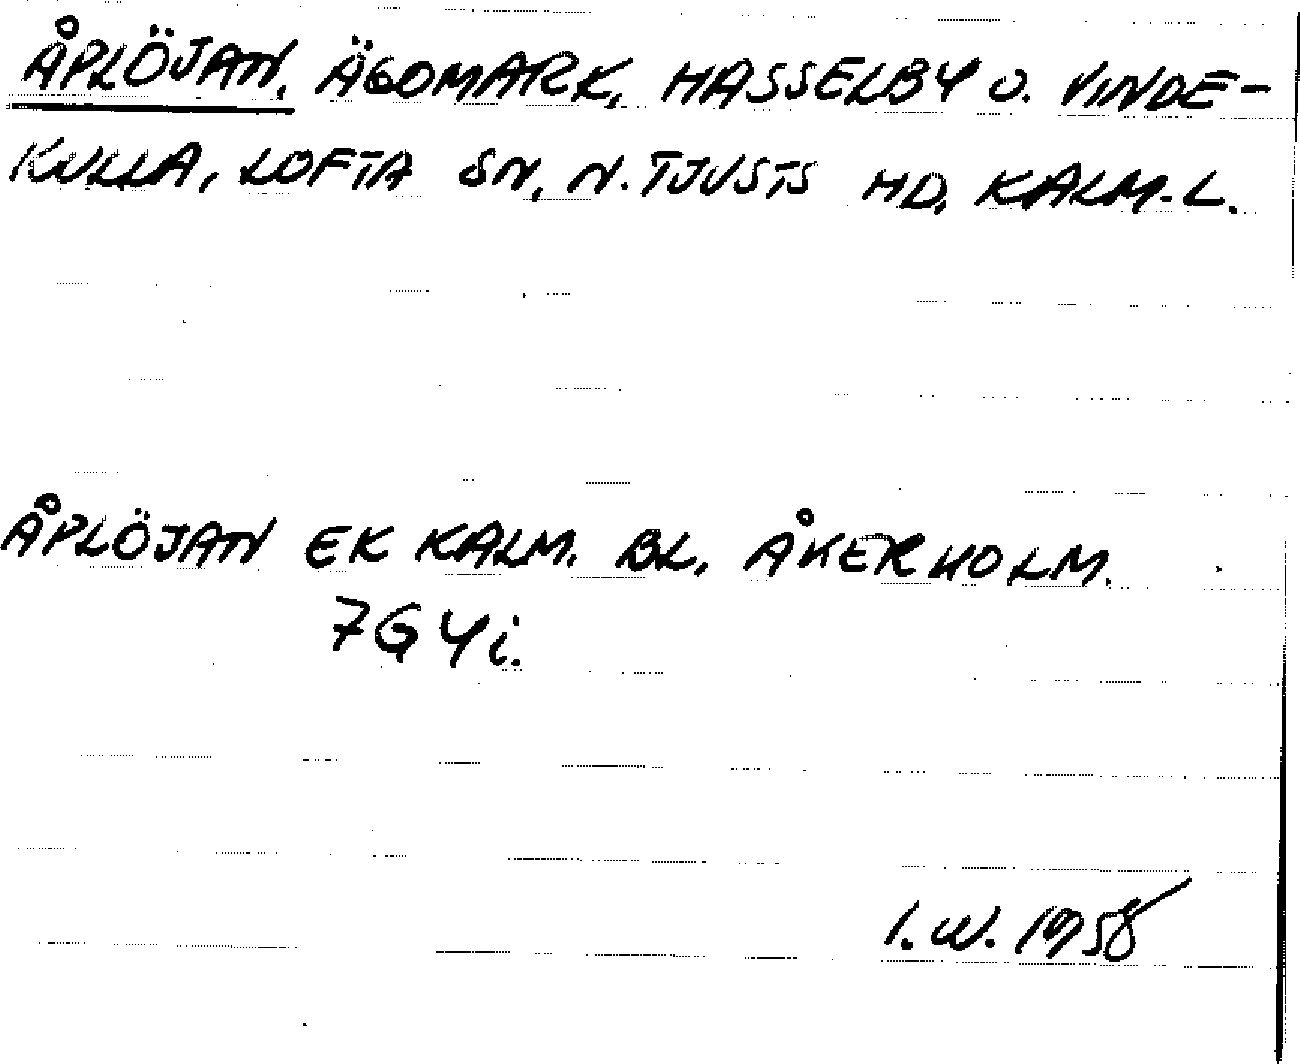 ÅPLÖJAN, ÄGOMARK, HASSELBY O. VINDE-
KULLA, LOFTA SN, N. TJUSTS HD, KALM. L.
ÅPLÖJAN EK KALM. BL, ÅKERHOLM.
7G4i.
I.W. 1958